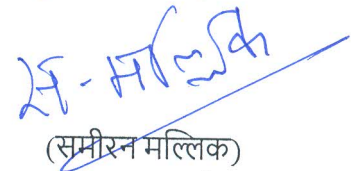 स-मल्लिक
(समीरन मल्लिक)